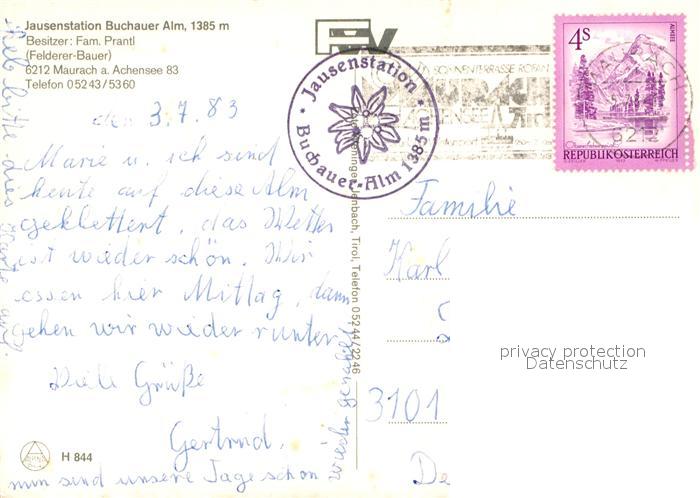 Jausenstation Buchauer Alm, 1385 m
Besitzer: Fam. Prantl
(Felderer-Bauer)
6212 Maurach a. Achensee 83
Telefon 05243/5360
den 3.7.83
Marie u. ich sind
heute auf diese Alm
geklettert, das Wetter
ist wieder schön. Wir
essen hier Mittag, dann
gehen wir wieder runter.
Viele Grüße
Gertrud.
nun sind unsere Tage schon
wieder gezählt
Heb bitte dies Karte auf.
H 844
Jenbach, Tirol, Telefon 05244/2246
Jausenstation
Buchauer-Alm 1385m
SONNENTERRASSE ROFAN
MAURACH
ACHENSEE
6212
4S
ALMSEE
REPUBLIK ÖSTERREICH
Familie
Karl
3101
De
privacy protection
Datenschutz